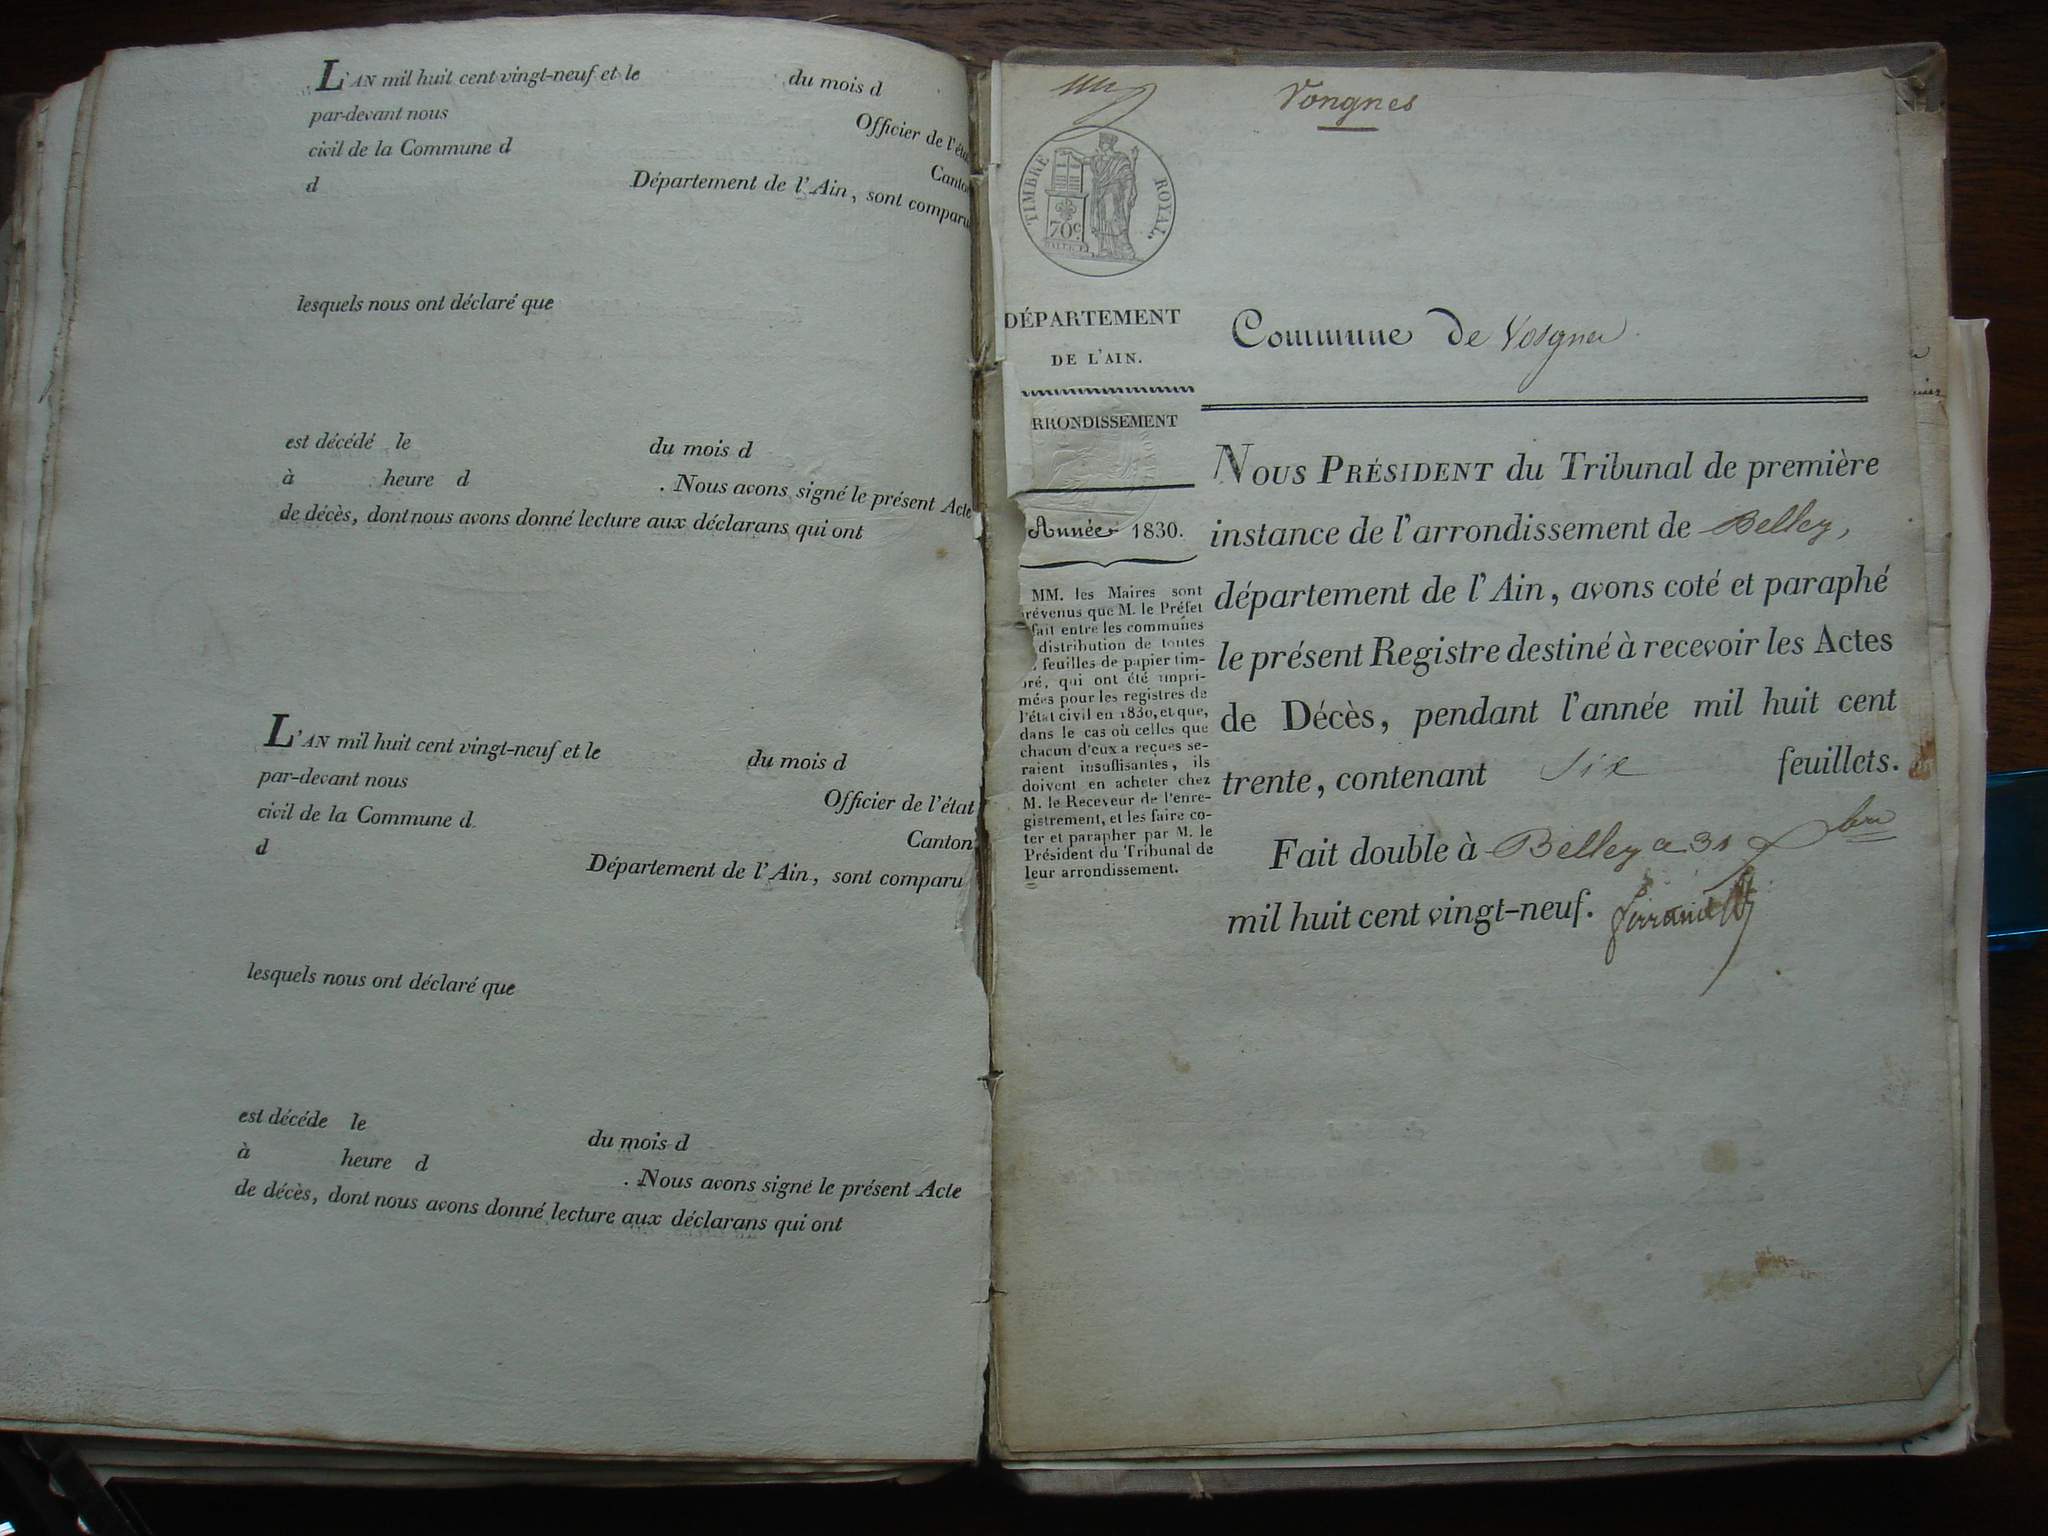 L'AN mil huit cent vingt-neuf et le du mois d
par-devant nous Officier de l'éta
civil de la Commune d Canton
d Département de l'Ain, sont comparu
lesquels nous ont déclaré que
est décédé le du mois d
à heure d . Nous avons signé le présent Acte
de décès, dont nous avons donné lecture aux déclarans qui ont
L'AN mil huit cent vingt-neuf et le du mois d
par-devant nous Officier de l'état
civil de la Commune d Canton
d Département de l'Ain, sont comparu
lesquels nous ont déclaré que
est décéde le du mois d
à heure d . Nous avons signé le présent Acte
de décès, dont nous avons donné lecture aux déclarans qui ont
Vongnes
TIMBRE ROYAL
70c.
DÉPARTEMENT
DE L'AIN.
RRONDISSEMENT
Année 1830.
MM. les Maires sont
révenus que M. le Préfet
fait entre les communes
distribution de toutes
feuilles de papier tim-
ré, qui ont été impri-
mées pour les registres de
l'état civil en 1830, et que,
dans le cas où celles que
chacun d'eux a reçues se-
raient insuffisantes, ils
doivent en acheter chez
M. le Receveur de l'enre-
gistrement, et les faire co-
ter et parapher par M. le
Président du Tribunal de
leur arrondissement.
Commune de Vosgnes
NOUS PRÉSIDENT du Tribunal de première
instance de l'arrondissement de Belley,
département de l'Ain, avons coté et paraphé
le présent Registre destiné à recevoir les Actes
de Décès, pendant l'année mil huit cent
trente, contenant Six feuillets.
Fait double à Belley a 31 xbre
mil huit cent vingt-neuf.